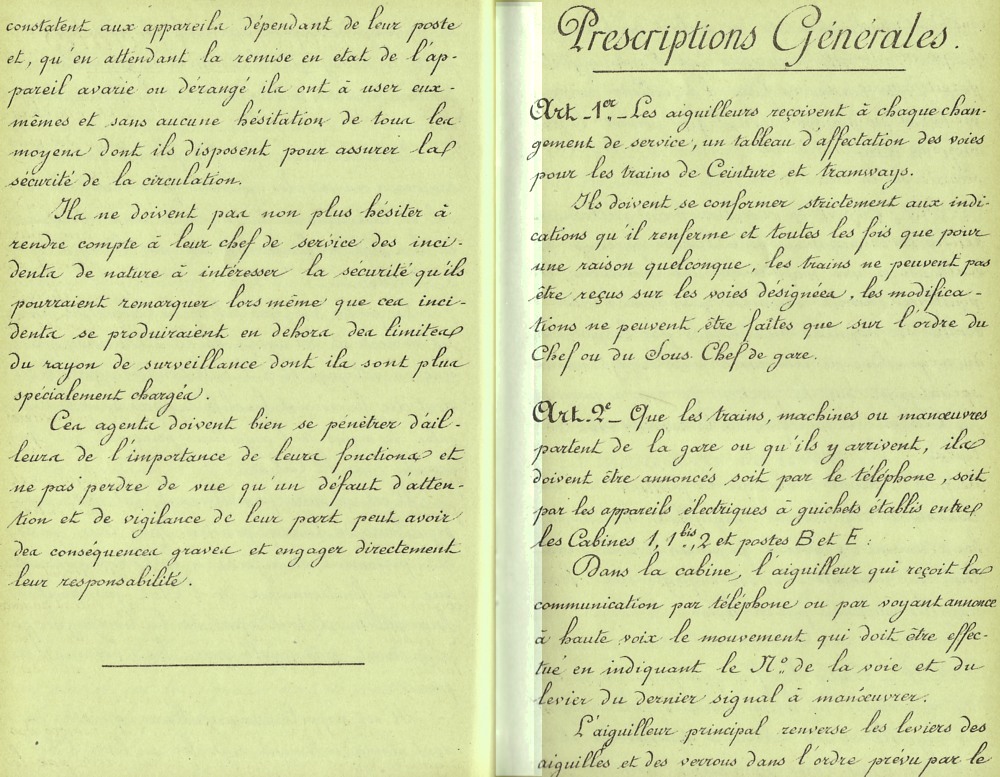 constatent aux appareils dépendant de leur poste
et, qu'en attendant la remise en etat de l'ap-
pareil avarié ou dérangé ils ont à user eux-
mêmes et sans aucune hésitation de tous les
moyens dont ils disposent pour assurer la
sécurité de la circulation.
Ils ne doivent pas non plus hésiter à
rendre compte à leur chef de service des inci-
dents de nature à intéresser la sécurité qu'ils
pourraient remarquer lors même que ces inci-
dents se produiraient en dehors des limites
du rayon de surveillance dont ils sont plus
spécialement chargés.
Ces agents doivent bien se pénétrer d'ail-
leurs de l'importance de leurs fonctions et
ne pas perdre de vue qu'un défaut d'atten-
tion et de vigilance de leur part peut avoir
des conséquences graves et engager directement
leur responsabilité.
Prescriptions Générales.
Art. 1er. – Les aiguilleurs reçoivent à chaque chan-
gement de service, un tableau d'affectation des voies
pour les trains de Ceinture et tramways.
Ils doivent se conformer strictement aux indi-
cations qu'il renferme et toutes les fois que pour
une raison quelconque, les trains ne peuvent pas
être reçus sur les voies désignées, les modifica-
tions ne peuvent être faites que sur l'ordre du
Chef ou du Sous Chef de gare.
Art. 2e – Que les trains, machines ou manœuvres
partent de la gare ou qu'ils y arrivent, ils
doivent être annoncés soit par le téléphone, soit
par les appareils électriques à guichets établis entre
les Cabines 1, 1bis, 2 et postes B et E :
Dans la cabine, l'aiguilleur qui reçoit la
communication par téléphone ou par voyant annonce
à haute voix le mouvement qui doit être effec-
tué en indiquant le No. de la voie et du
levier du dernier signal à manœuvrer.
L'aiguilleur principal renverse les leviers des
aiguilles et des verrous dans l'ordre prévu par le